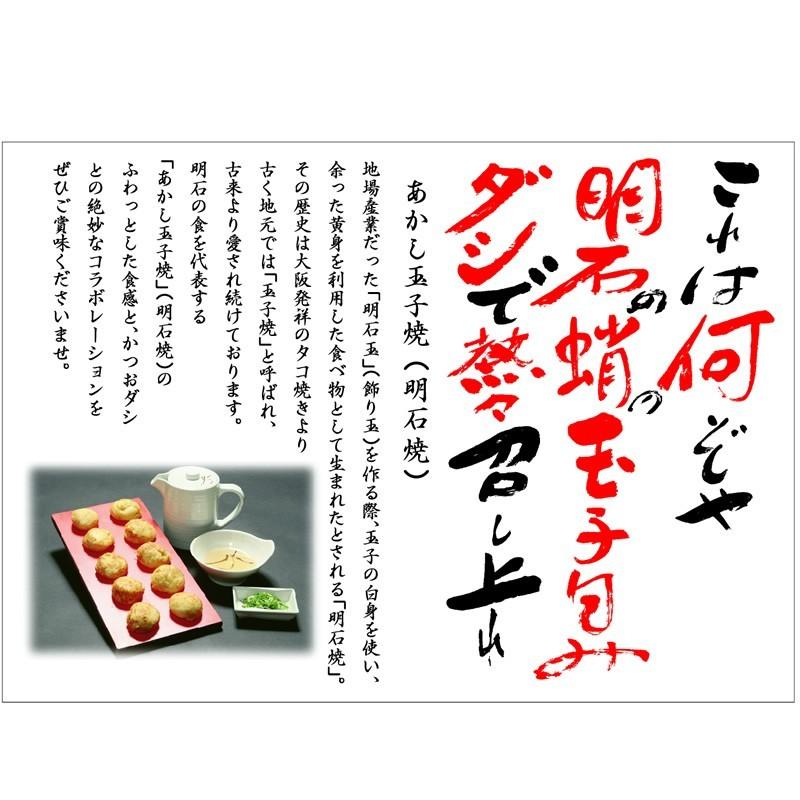 これは何ぞや
明石の蛸の玉子包み
ダシで熱々召し上れ
あかし玉子焼(明石焼)
地場産業だった「明石玉」(飾り玉)を作る際、玉子の白身を使い、
余った黄身を利用した食べ物として生まれたとされる「明石焼」。
その歴史は大阪発祥のタコ焼きより
古く地元では「玉子焼」と呼ばれ、
古来より愛され続けております。
明石の食を代表する
「あかし玉子焼」(明石焼)の
ふわっとした食感と、かつおダシ
との絶妙なコラボレーションを
ぜひご賞味くださいませ。